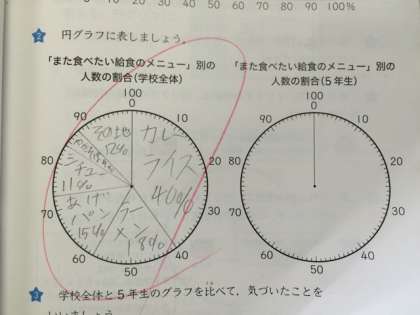 10 20 30 40 50 60 70 80 90 100%
2 円グラフに表しましょう。
「また食べたい給食のメニュー」別の
人数の割合(学校全体)
100
0
10
20
30
40
50
60
70
80
90
カレー
ライス
40%
ラー
メン
18%
あげ
パン
15%
シチュー
11%
その他
12%
「また食べたい給食のメニュー」別の
人数の割合(5年生)
100
0
10
20
30
40
50
60
70
80
90
3 学校全体と5年生のグラフを比べて,気づいたことを
くら
いいましょう